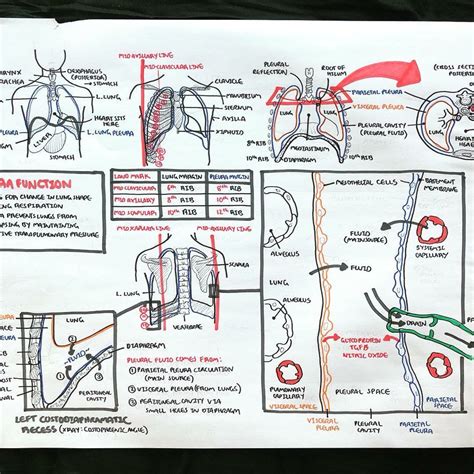 OESOPHAGUS
(POSTERIOR)
→ STOMACH
L. LUNG
HEART SITS
HERE
L. LUNG PLEURA
LIVER
STOMACH
MID AXILIARY LINE
MID CLAVICULAR LINE
CLAVICLE
MANUBRIUM
STERNUM
AXILLA
XIPHOID
PLEURAL
REFLECTION
ROOT OF
LUNG
LUNG
8th RIB
10th RIB
8th RIB
10th RIB
DIAPHRAGM
PARIETAL PLEURA
VISCERAL PLEURA
PLEURAL CAVITY
(PLEURAL FLUID)
(CROSS SECTION
LUNG
HEART
FUNCTION
FOR CHANGE IN LUNG SHAPE
RESPIRATION
PREVENTS LUNGS FROM
BY MAINTAINING
TRANSPULMONARY PRESSURE
LAND MARK
LUNG MARGIN
PLEURA MARGIN
MID CLAVICULAR
6th RIB
8th RIB
MID AXILIARY
8th RIB
10th RIB
MID SCAPULAR
10th RIB
12th RIB
MID AXILIARY LINE
SCAPULA
L. LUNG
VERTEBRAE
LUNG
FLUID
DIAPHRAGM
PERITONEAL
CAVITY
LEFT COSTODIAPHRAGMATIC
RECESS (XRAY: COSTOPHRENIC ANGLE)
PLEURAL FLUID COMES FROM:
① PARIETAL PLEURA CIRCULATION
(MAIN SOURCE)
② VISCERAL PLEURA (FROM LUNGS)
③ PERITONEAL CAVITY VIA
SMALL HOLES IN DIAPHRAGM
MESOTHELIAL CELLS
BASEMENT
MEMBRANE
ALVEOLUS
LUNG
ALVEOLUS
PULMONARY
CAPILLARY
VISCERAL SPACE
FLUID
(MAIN SOURCE)
SYSTEMIC
CAPILLARY
FLUID
DRAIN
GLYCOPROTEIN
TGFβ
NITRIC OXIDE
PLEURAL SPACE
PARIETAL SPACE
VISCERAL
PLEURA
PLEURAL
CAVITY